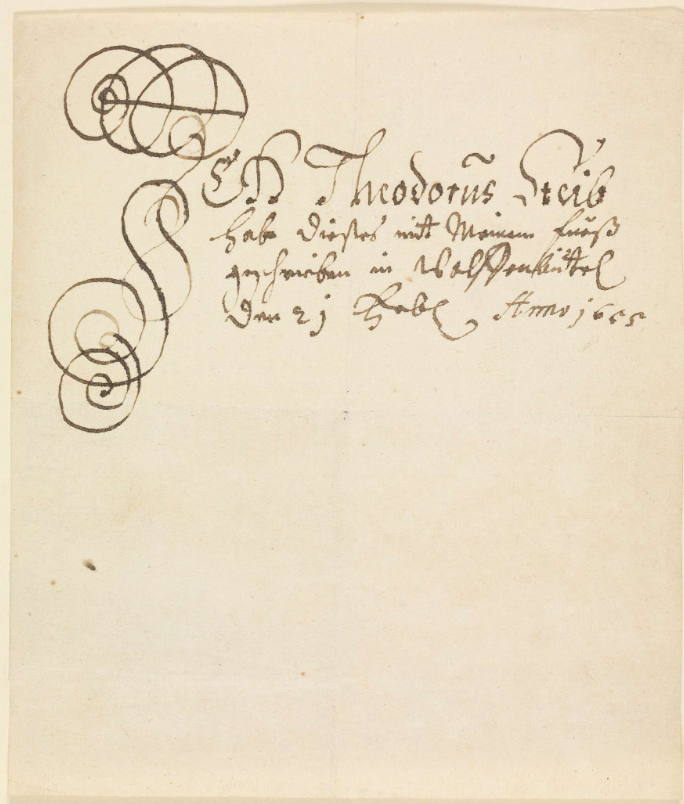 ICH Theodorus Steib
habe dieses mit Meinem fueß
geschrieben in Wolffenbüttel
den 21 Anno 1655